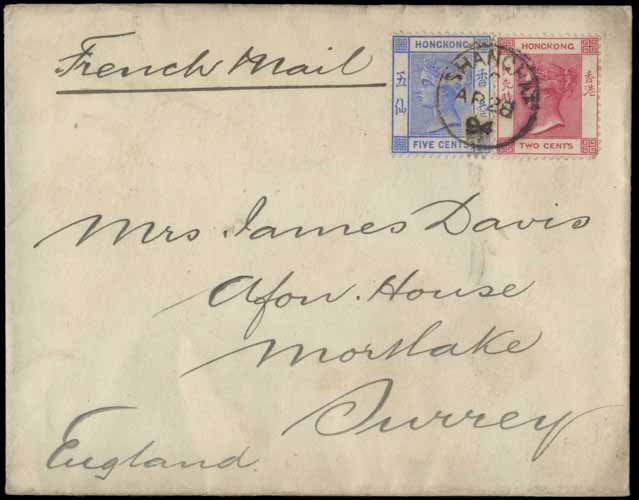 French Mail
HONGKONG
五仙
香港
FIVE CENTS
HONGKONG
香港
TWO CENTS
SHANGHAI
AP 28
94
Mrs James Davis
Afon. House
Mortlake
Surrey
England.